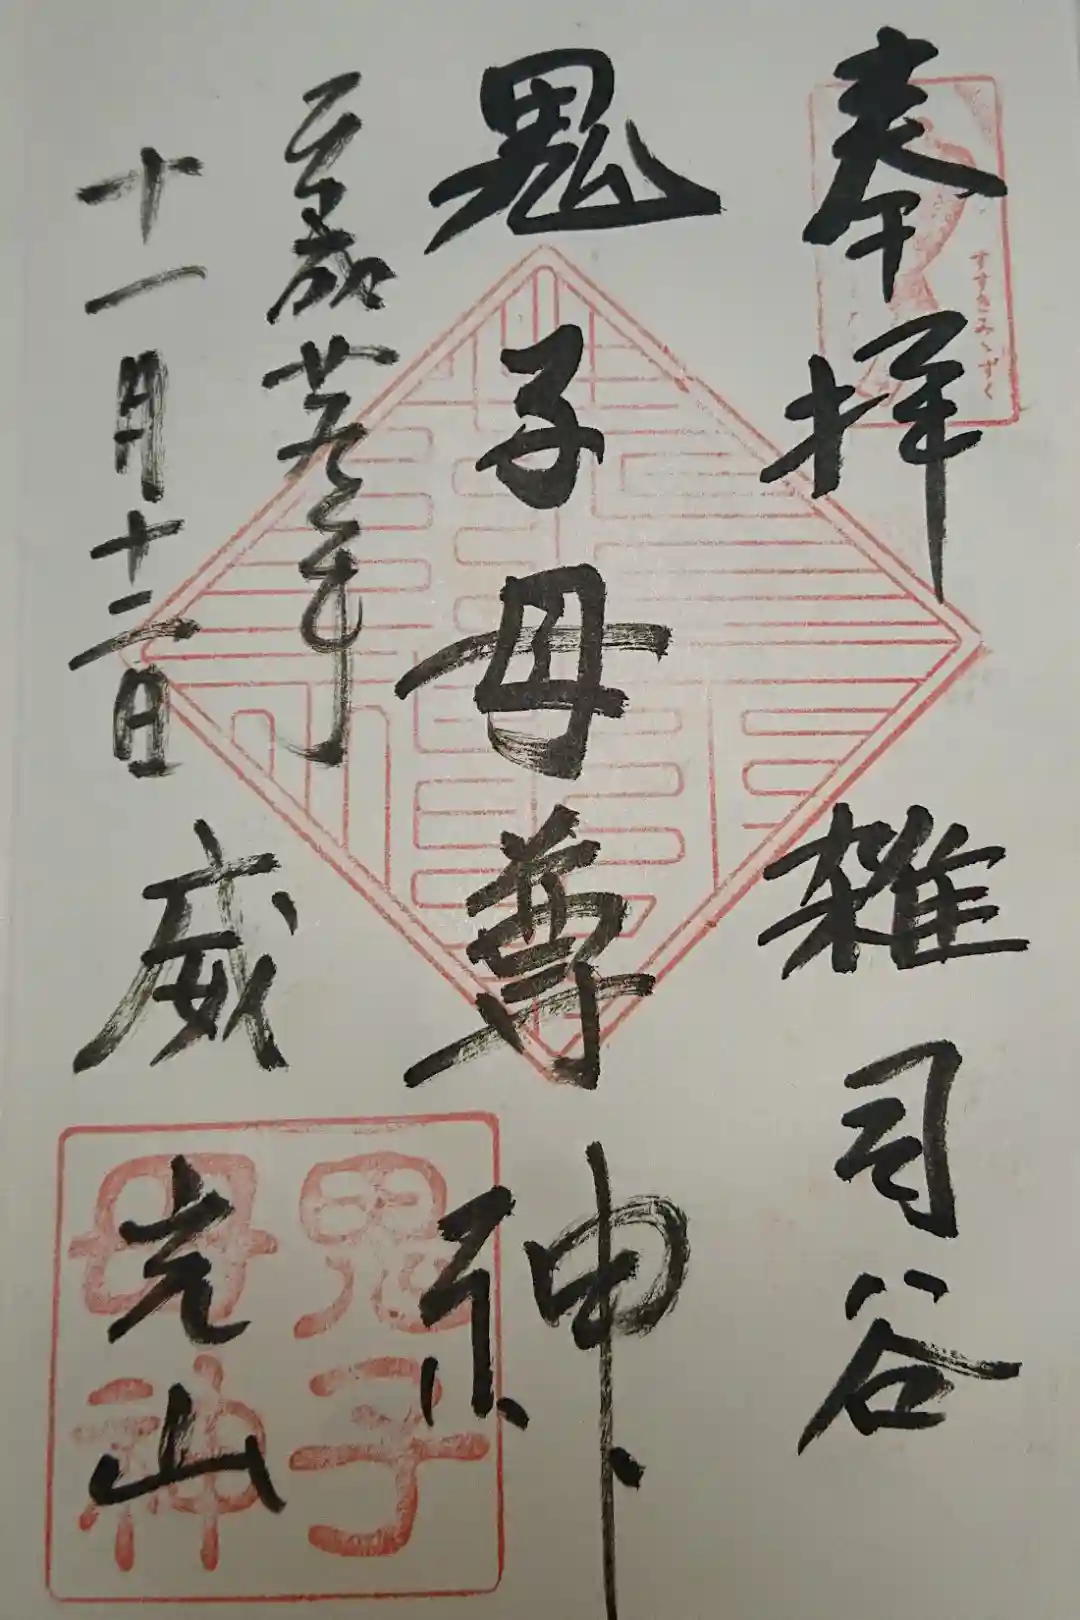 奉拝 雑司谷
すすきみゝずく
鬼子母尊神
平成廿九年
十一月十二日
威光山
鬼子
母神